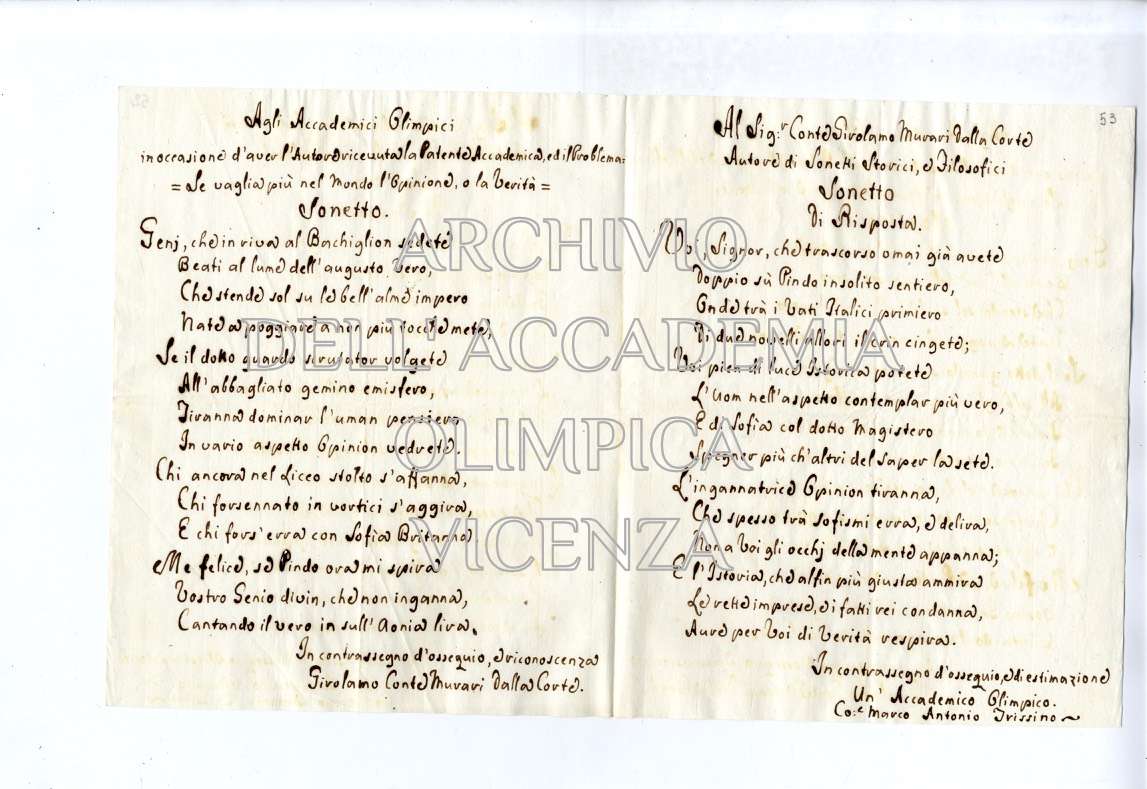 52
Agli Accademici Olimpici
in occasione d'aver l'Autore ricevuta la Patente Accademica, ed il Problema:
= Se vaglia più nel Mondo l'Opinione, o la Verità =
Sonetto.
Genj, che in riva al Bachiglion sedete
Beati al lume dell'augusto Vero,
Che stende sol su le bell'alme impero
Nate a poggiare a non più tocche mete,
Se il dotto guardo scrutator volgete
All'abbagliato gemino emisfero,
Tiranna dominar l'uman pensiero
In vario aspetto Opinion vedrete.
Chi ancora nel Liceo stolto s'affanna,
Chi forsennato in vortici s'aggira,
E chi fors'erra con Sofia Britanna.
Me felice, se Pindo ora mi spira
Vostro Genio divin, che non inganna,
Cantando il vero in sull'Aonia lira.
In contrassegno d'ossequio, e riconoscenza
Girolamo Conte Murari Dalla Corte.
53
Al Sig:r Conte Girolamo Murari Dalla Corte
Autore di Sonetti Storici, e Filosofici
Sonetto
Di Risposta.
Voi, Signor, che trascorso omai già avete
Doppio sù Pindo insolito sentiero,
Onde trà i Vati Italici primiero
Di due novelli allori il crin cingete;
Voi pien di luce Istorica potete
L'Uom nell'aspetto contemplar più vero,
E di Sofia col dotto Magistero
Spegner più ch'altri del saper la sete.
L'ingannatrice Opinion tiranna,
Che spesso trà sofismi erra, e delira,
Non a Voi gli occhj della mente appanna;
E l'Istoria, che alfin più giusta ammira
Le rette imprese, e i fatti rei condanna,
Aure per Voi di Verità respira.
In contrassegno d'ossequio, e di estimazione
Un' Accademico Olimpico.
Co:e Marco Antonio Trissino
ARCHIVIO
DELL'ACCADEMIA
OLIMPICA
VICENZA